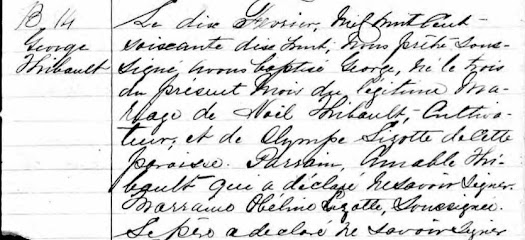 B 14
George
Thibault
Le dix Février, mil huit cent
soixante dix huit, nous prêtre sous-
signé avons baptisé George, né le trois
du présent mois du légitime ma-
riage de Noël Thibault, cultiva-
teur, et de Olympe Lizotte de cette
paroisse. Parrain, Amable Thi-
bault qui a déclaré ne savoir signer.
Marraine Obéline Lizotte, soussignée.
Le père a déclaré ne savoir signer